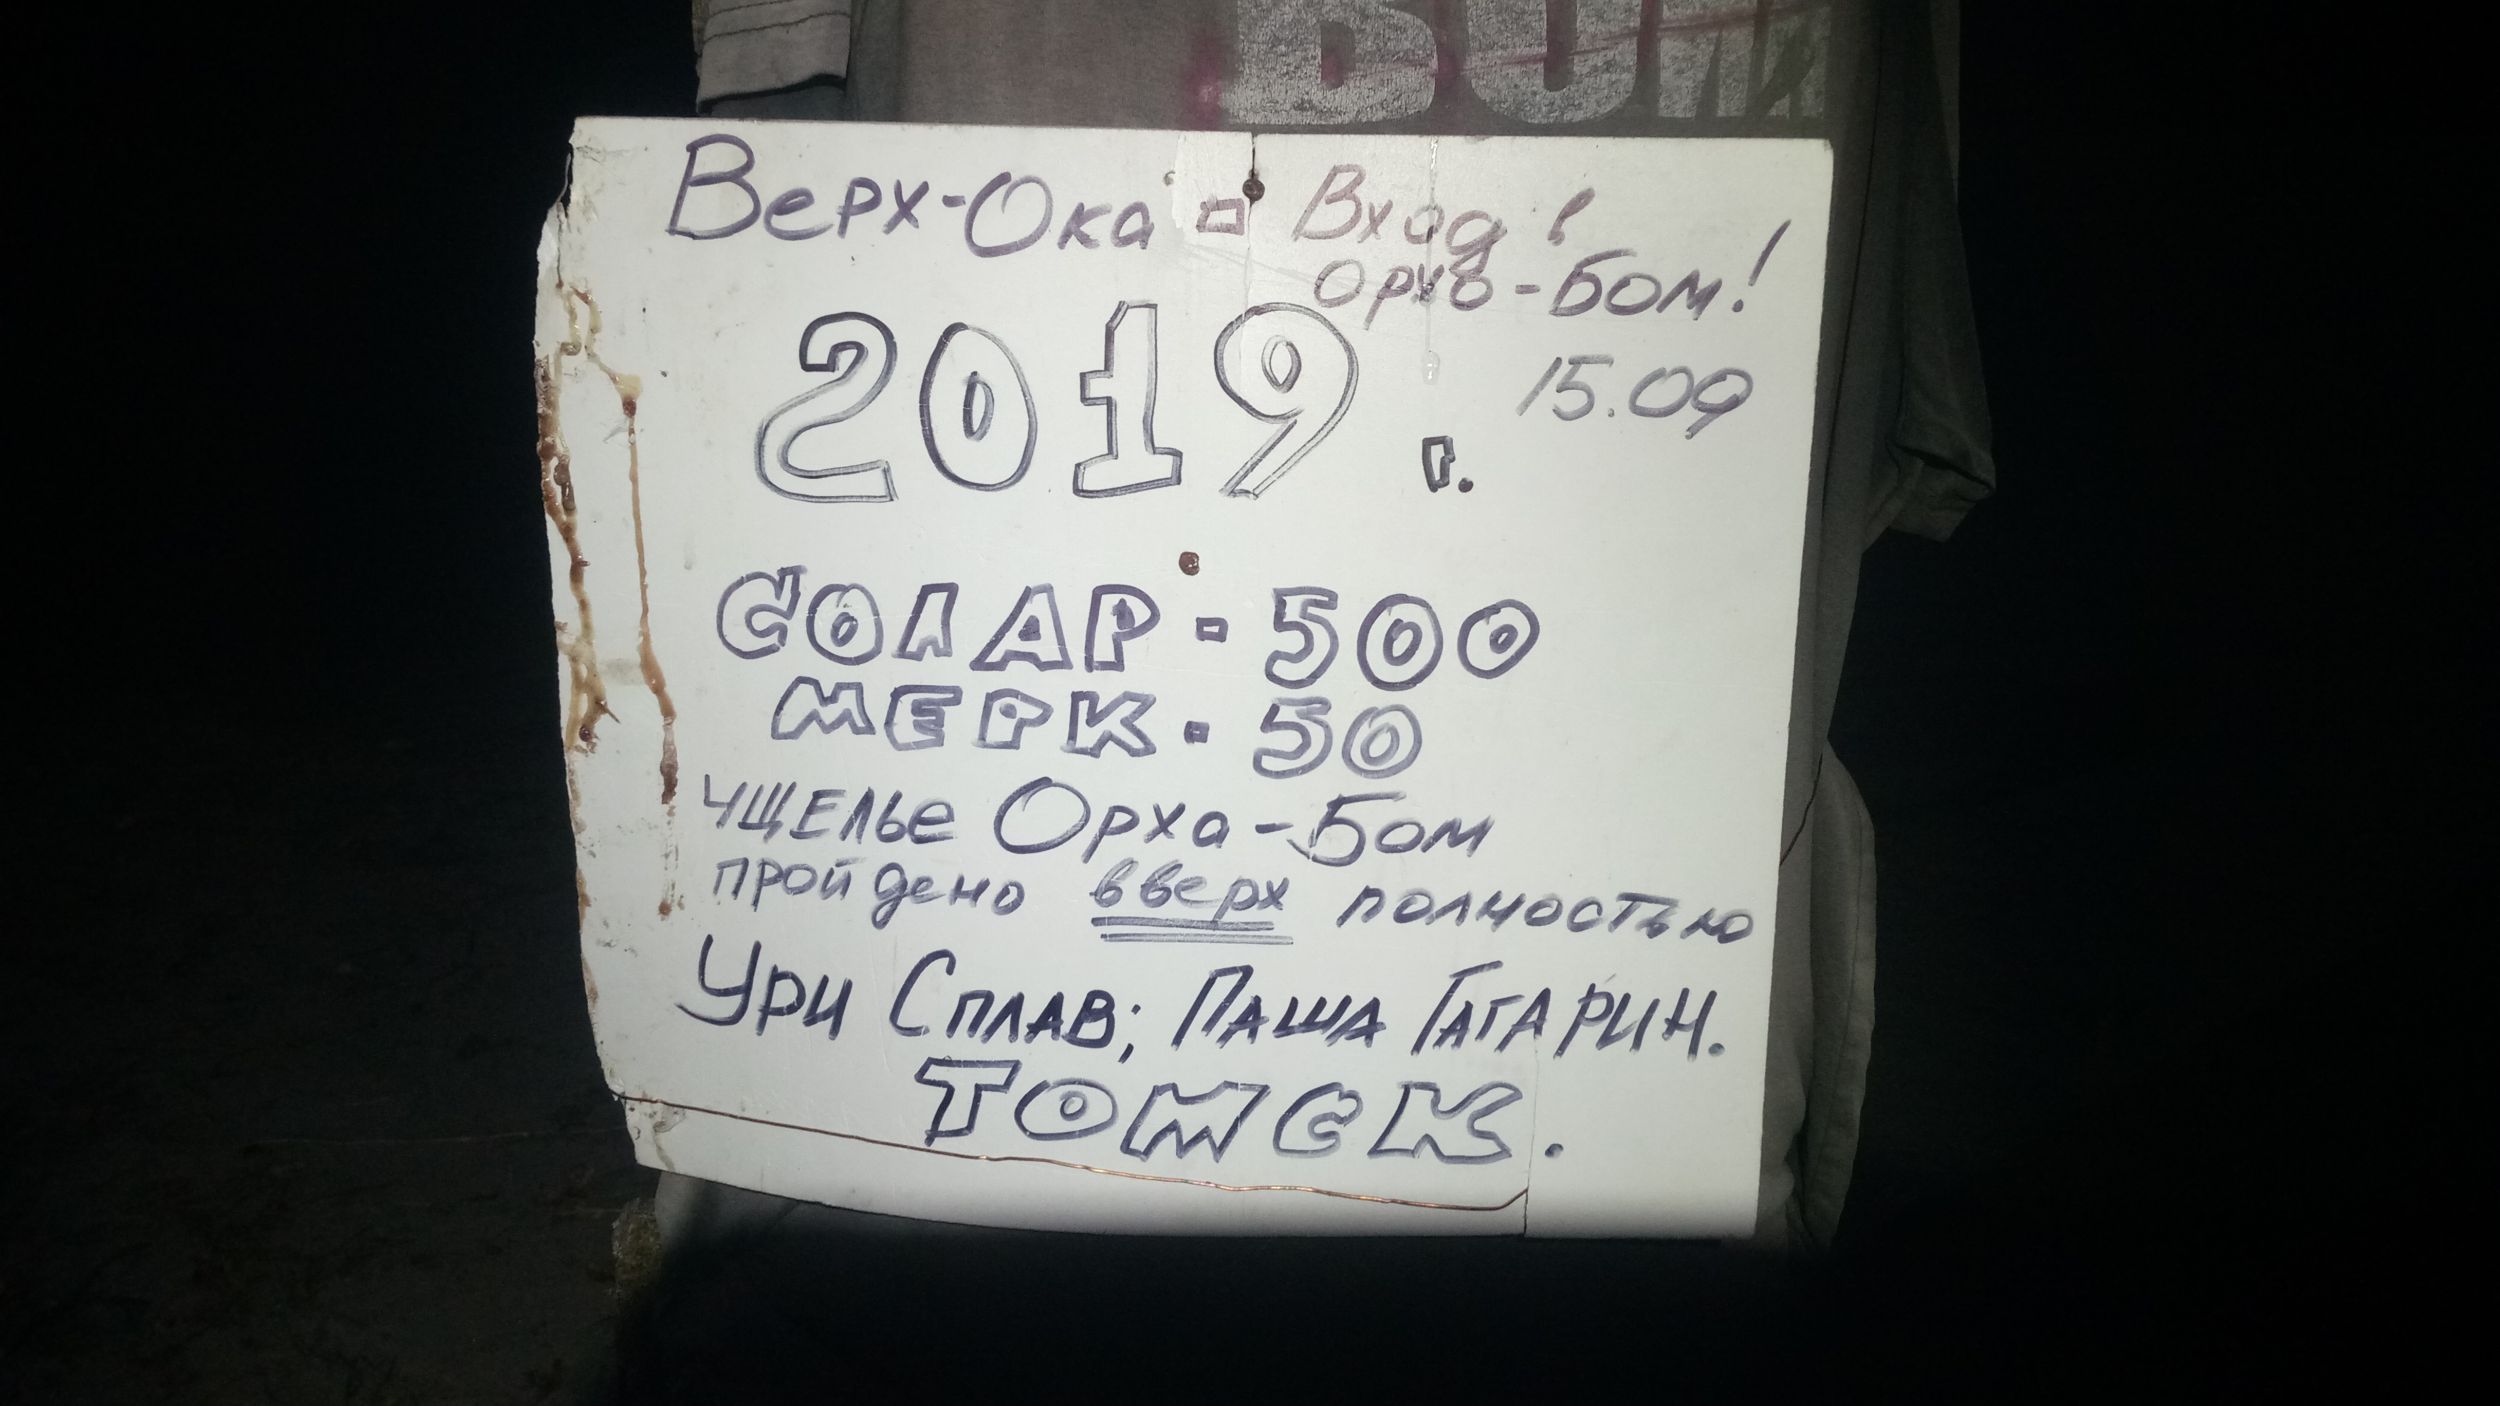 Верх-Ока - Вход в
Орхо-Бом!
2019 г.
15.09
СОЛАР-500
МЕРК-50
ущелье Орха-Бом
пройдено вверх полностью
Ури Сплав; Паша Гагарин.
ТОМСК.